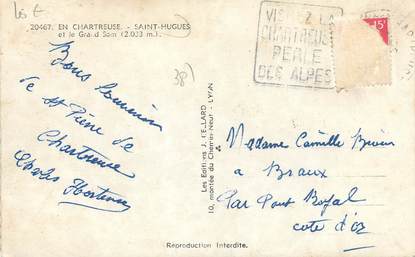 20467. EN CHARTREUSE. - SAINT-HUGUES
et le Grand Som (2.033 m.).
38)
VISITEZ LA
CHARTREUSE
PERLE
DES ALPES
15f
Bons Souvenirs
de St Pierre de
Chartreuse
Charles
Les Editions J. CELLARD
10, montée du Chemin-Neuf - LYON
Madame Camille
à Braux
Par Pont Royal
cote d'Or
Reproduction Interdite.